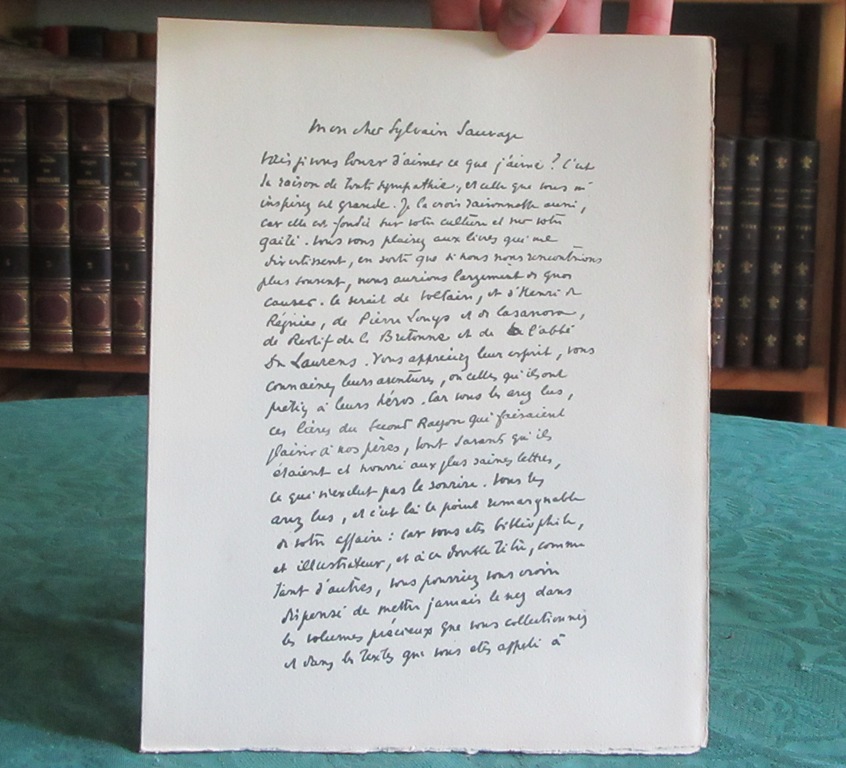 Mon cher Sylvain Sauvage
Vais-je vous louer d'aimer ce que j'aime ? C'est
la raison de toute sympathie, et celle que vous m'
inspirez est grande. Je la crois raisonnable aussi,
car elle est fondée sur votre culture et sur votre
gaité. Vous vous plaisez aux livres qui me
divertissent, en sorte que si nous nous rencontrions
plus souvent, nous aurions largement de quoi
causer. Ce serait de Voltaire, et d'Henri de
Régnier, de Pierre Louys et de Casanova,
de Restif de la Bretonne et de l'abbé
Du Laurens. Vous appréciez leur esprit, vous
connaissez leurs aventures, ou celles qu'ils ont
prêtées à leurs héros. Car vous les avez lus,
ces livres du Second Rayon qui faisaient
plaisir à nos pères, tout savants qu'ils
étaient et nourris aux plus saines lettres,
ce qui n'exclut pas le sourire. Vous les
avez lus, et c'est là le point remarquable
de votre affaire : car vous etes bibliophile,
et illustrateur, et à ce double titre, comme
tant d'autres, vous pourriez vous croire
dispensé de mettre jamais le nez dans
les volumes précieux que vous collectionnez
et dans les textes que vous etes appelé à